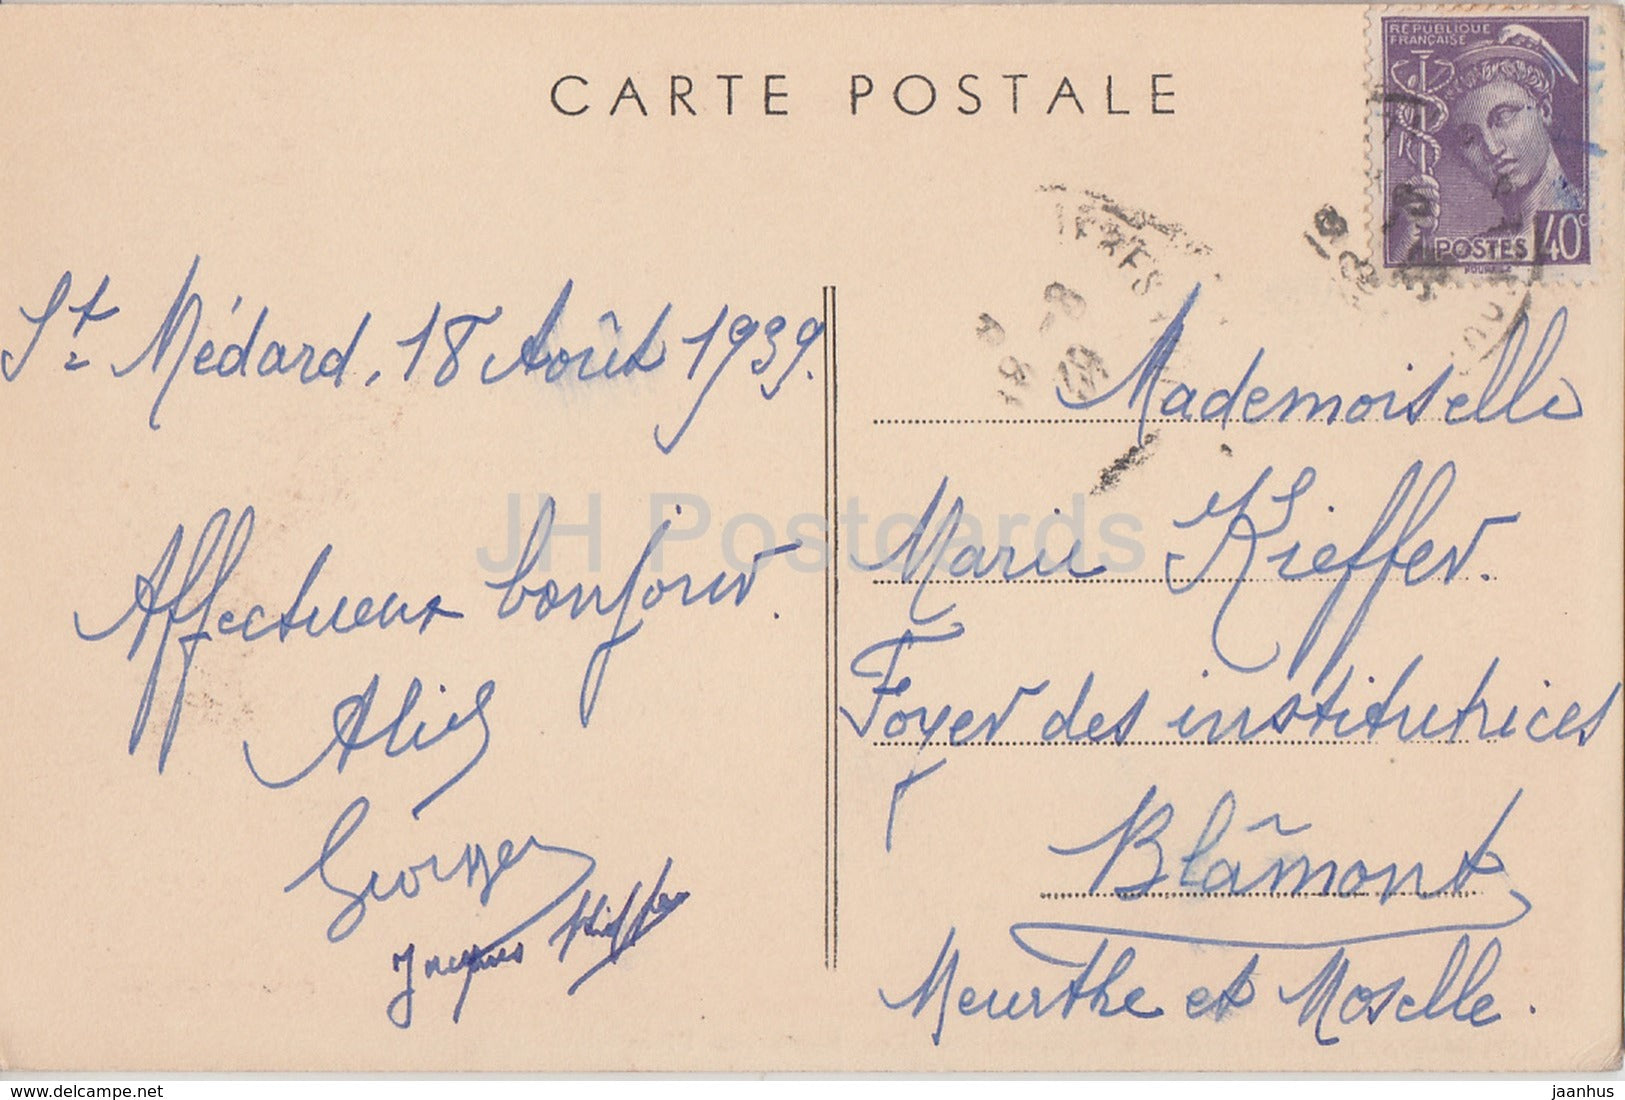 CARTE POSTALE
RÉPUBLIQUE
FRANÇAISE
POSTES 40c
St Médard, 18 Août 1939.
Affectueux bonjour.
Alice
Georges
Jacques Kieffer
Mademoiselle
Marie Kieffer.
Foyer des institutrices
Blâmont
Meurthe et Moselle.
JH Postcards
www.delcampe.net
jaanhus